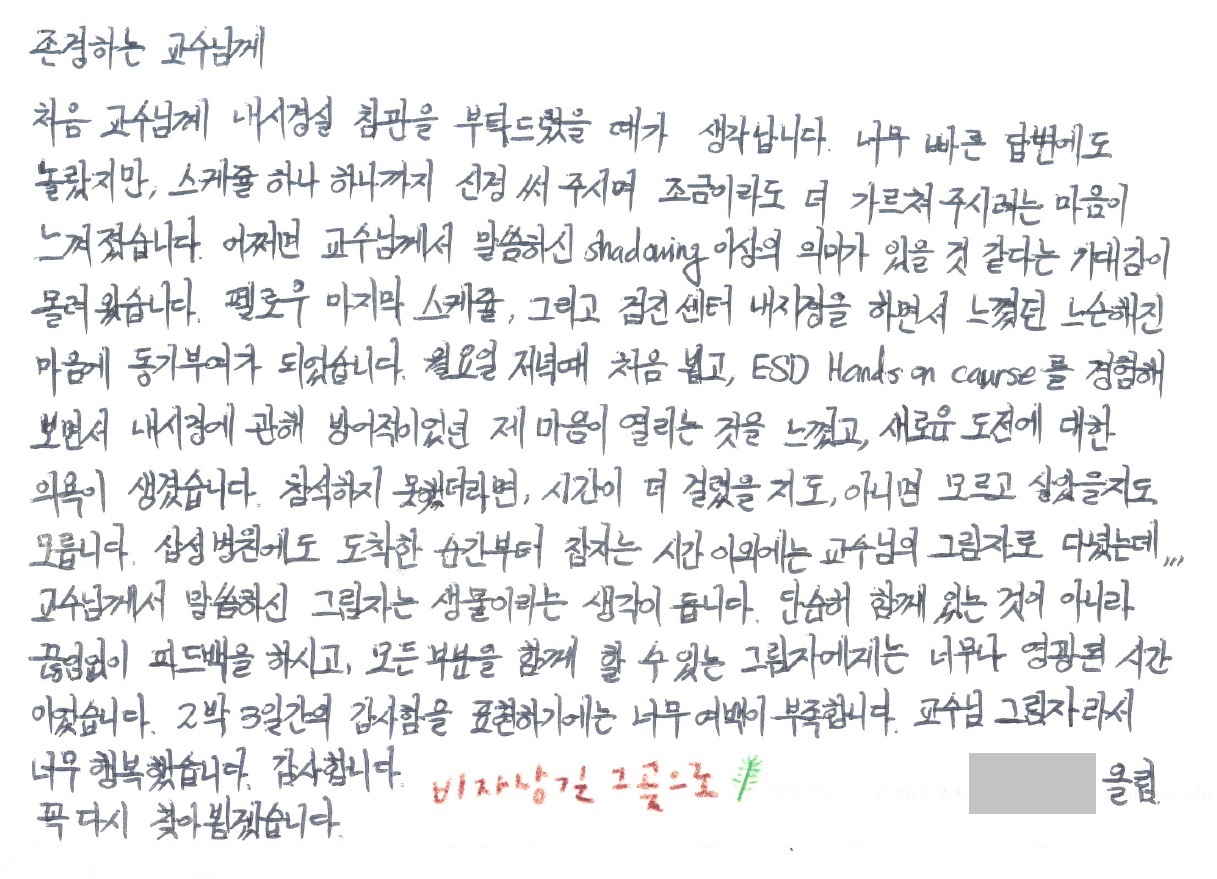 존경하는 교수님께
처음 교수님께 내시경실 참관을 부탁드렸을 때가 생각납니다. 너무 빠른 답변에도
놀랐지만, 스케쥴 하나 하나까지 신경 써 주시며 조금이라도 더 가르쳐 주시려는 마음이
느껴졌습니다. 어쩌면 교수님께서 말씀하신 shadowing 이상의 의미가 있을 것 같다는 기대감이
몰려 왔습니다. 펠로우 마지막 스케쥴, 그리고 검진센터 내시경을 하면서 느꼈던 느슨해진
마음에 동기부여가 되었습니다. 월요일 저녁때 처음 뵙고, ESD Hands on course를 경험해
보면서 내시경에 관해 방어적이었던 제 마음이 열리는 것을 느꼈고, 새로운 도전에 대한
의욕이 생겼습니다. 참석하지 못했더라면, 시간이 더 걸렸을 지도, 아니면 모르고 살았을지도
모릅니다. 삼성병원에도 도착한 순간부터 잠자는 시간 이외에는 교수님의 그림자로 다녔는데,,,
교수님께서 말씀하신 그림자는 생물이라는 생각이 듭니다. 단순히 함께 있는 것이 아니라
끊임없이 피드백을 하시고, 모든 부분을 함께 할 수 있는 그림자에게는 너무나 영광된 시간
이었습니다. 2박 3일간의 감사함을 표현하기에는 너무 여백이 부족합니다. 교수님 그림자라서
너무 행복했습니다. 감사합니다.
비자낭길 그곳으로
올림.
꼭 다시 찾아뵙겠습니다.